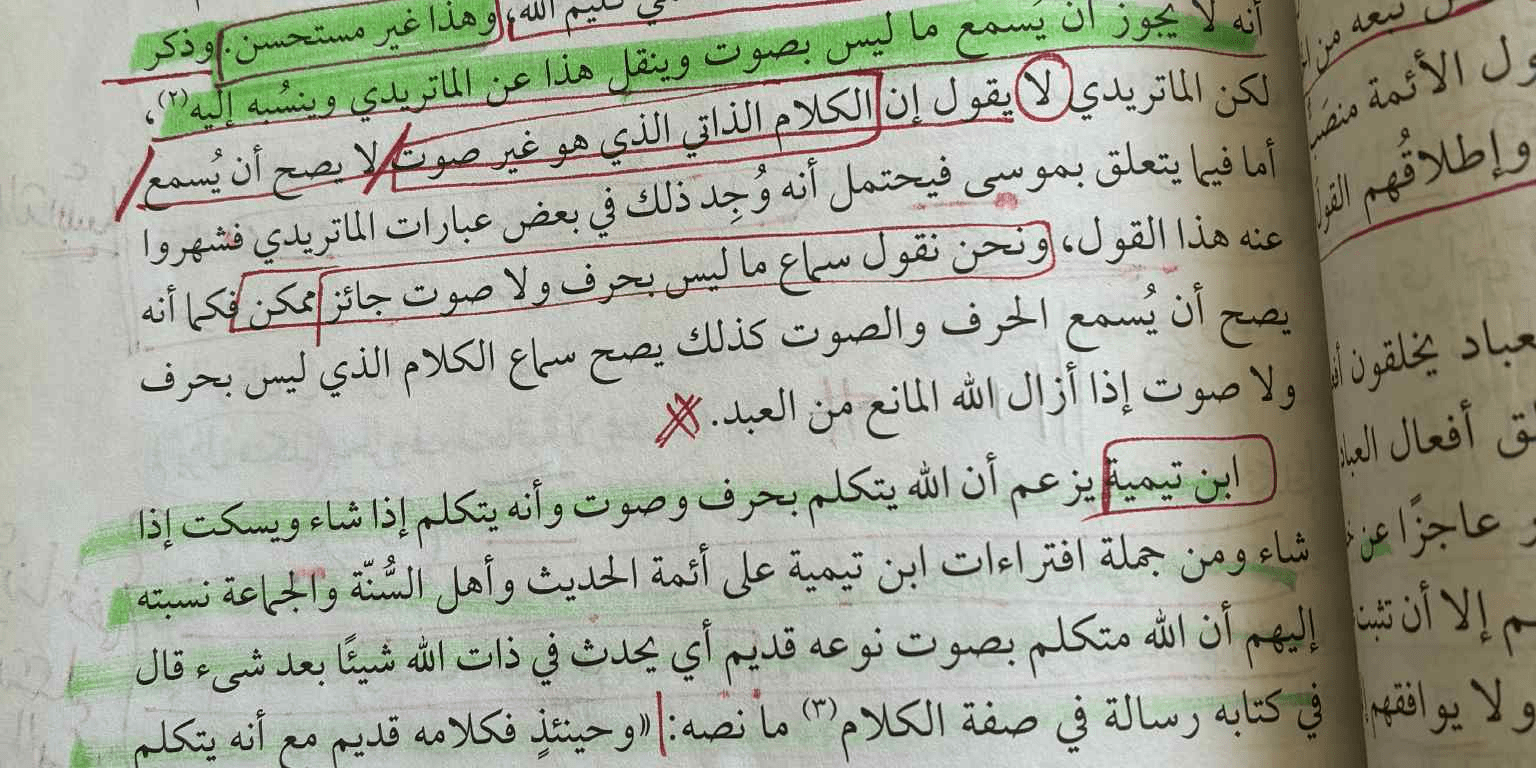 كليم الله، وهذا غير مستحسن. وذكر
أنه لا يجوز أن يُسمع ما ليس بصوت وينقل هذا عن الماتريدي وينسُبه إليه(٢)،
لكن الماتريدي لا يقول إن الكلام الذاتي الذي هو غير صوت لا يصح أن يُسمع
أما فيما يتعلق بموسى فيحتمل أنه وُجِد ذلك في بعض عبارات الماتريدي فشهروا
عنه هذا القول، ونحن نقول سماع ما ليس بحرف ولا صوت جائز ممكن فكما أنه
يصح أن يُسمع الحرف والصوت كذلك يصح سماع الكلام الذي ليس بحرف
ولا صوت إذا أزال الله المانع من العبد.
ابن تيمية يزعم أن الله يتكلم بحرف وصوت وأنه يتكلم إذا شاء ويسكت إذا
شاء ومن جملة افتراءات ابن تيمية على أئمة الحديث وأهل السُّنّة والجماعة نسبته
إليهم أن الله متكلم بصوت نوعه قديم أي يحدث في ذات الله شيئًا بعد شىء قال
في كتابه رسالة في صفة الكلام(٣) ما نصه: «وحينئذٍ فكلامه قديم مع أنه يتكلم
تبعه من
ول الأئمة
وإطلاقُهم القول
عباد يخلقون
لق أفعال العباد
عاجزًا عن
م إلا أن تثبت
ولا يوافقهم